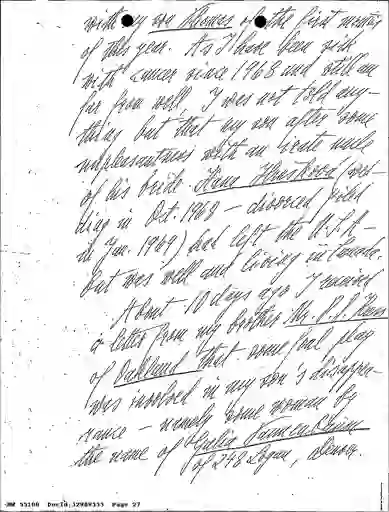 with my son Thomas of the first months
of this year. As I have been sick
with cancer since 1968 and still am
far from well, I was not told any-
thing but that my son after some
unpleasantness with an irate uncle
of his bride (wed-
ding in Oct. 1968 - divorced,
in Jan. 1969) had left the U.S.A -
but was well and living in Canada.
About 10 days ago I received
a letter from my brother Mr.
of Oakland that some foul play
was involved in my son's disappea-
rance - namely some woman by
the name of
of 248 Logan, Denver.
NW 55108 DocId:32989555 Page 27